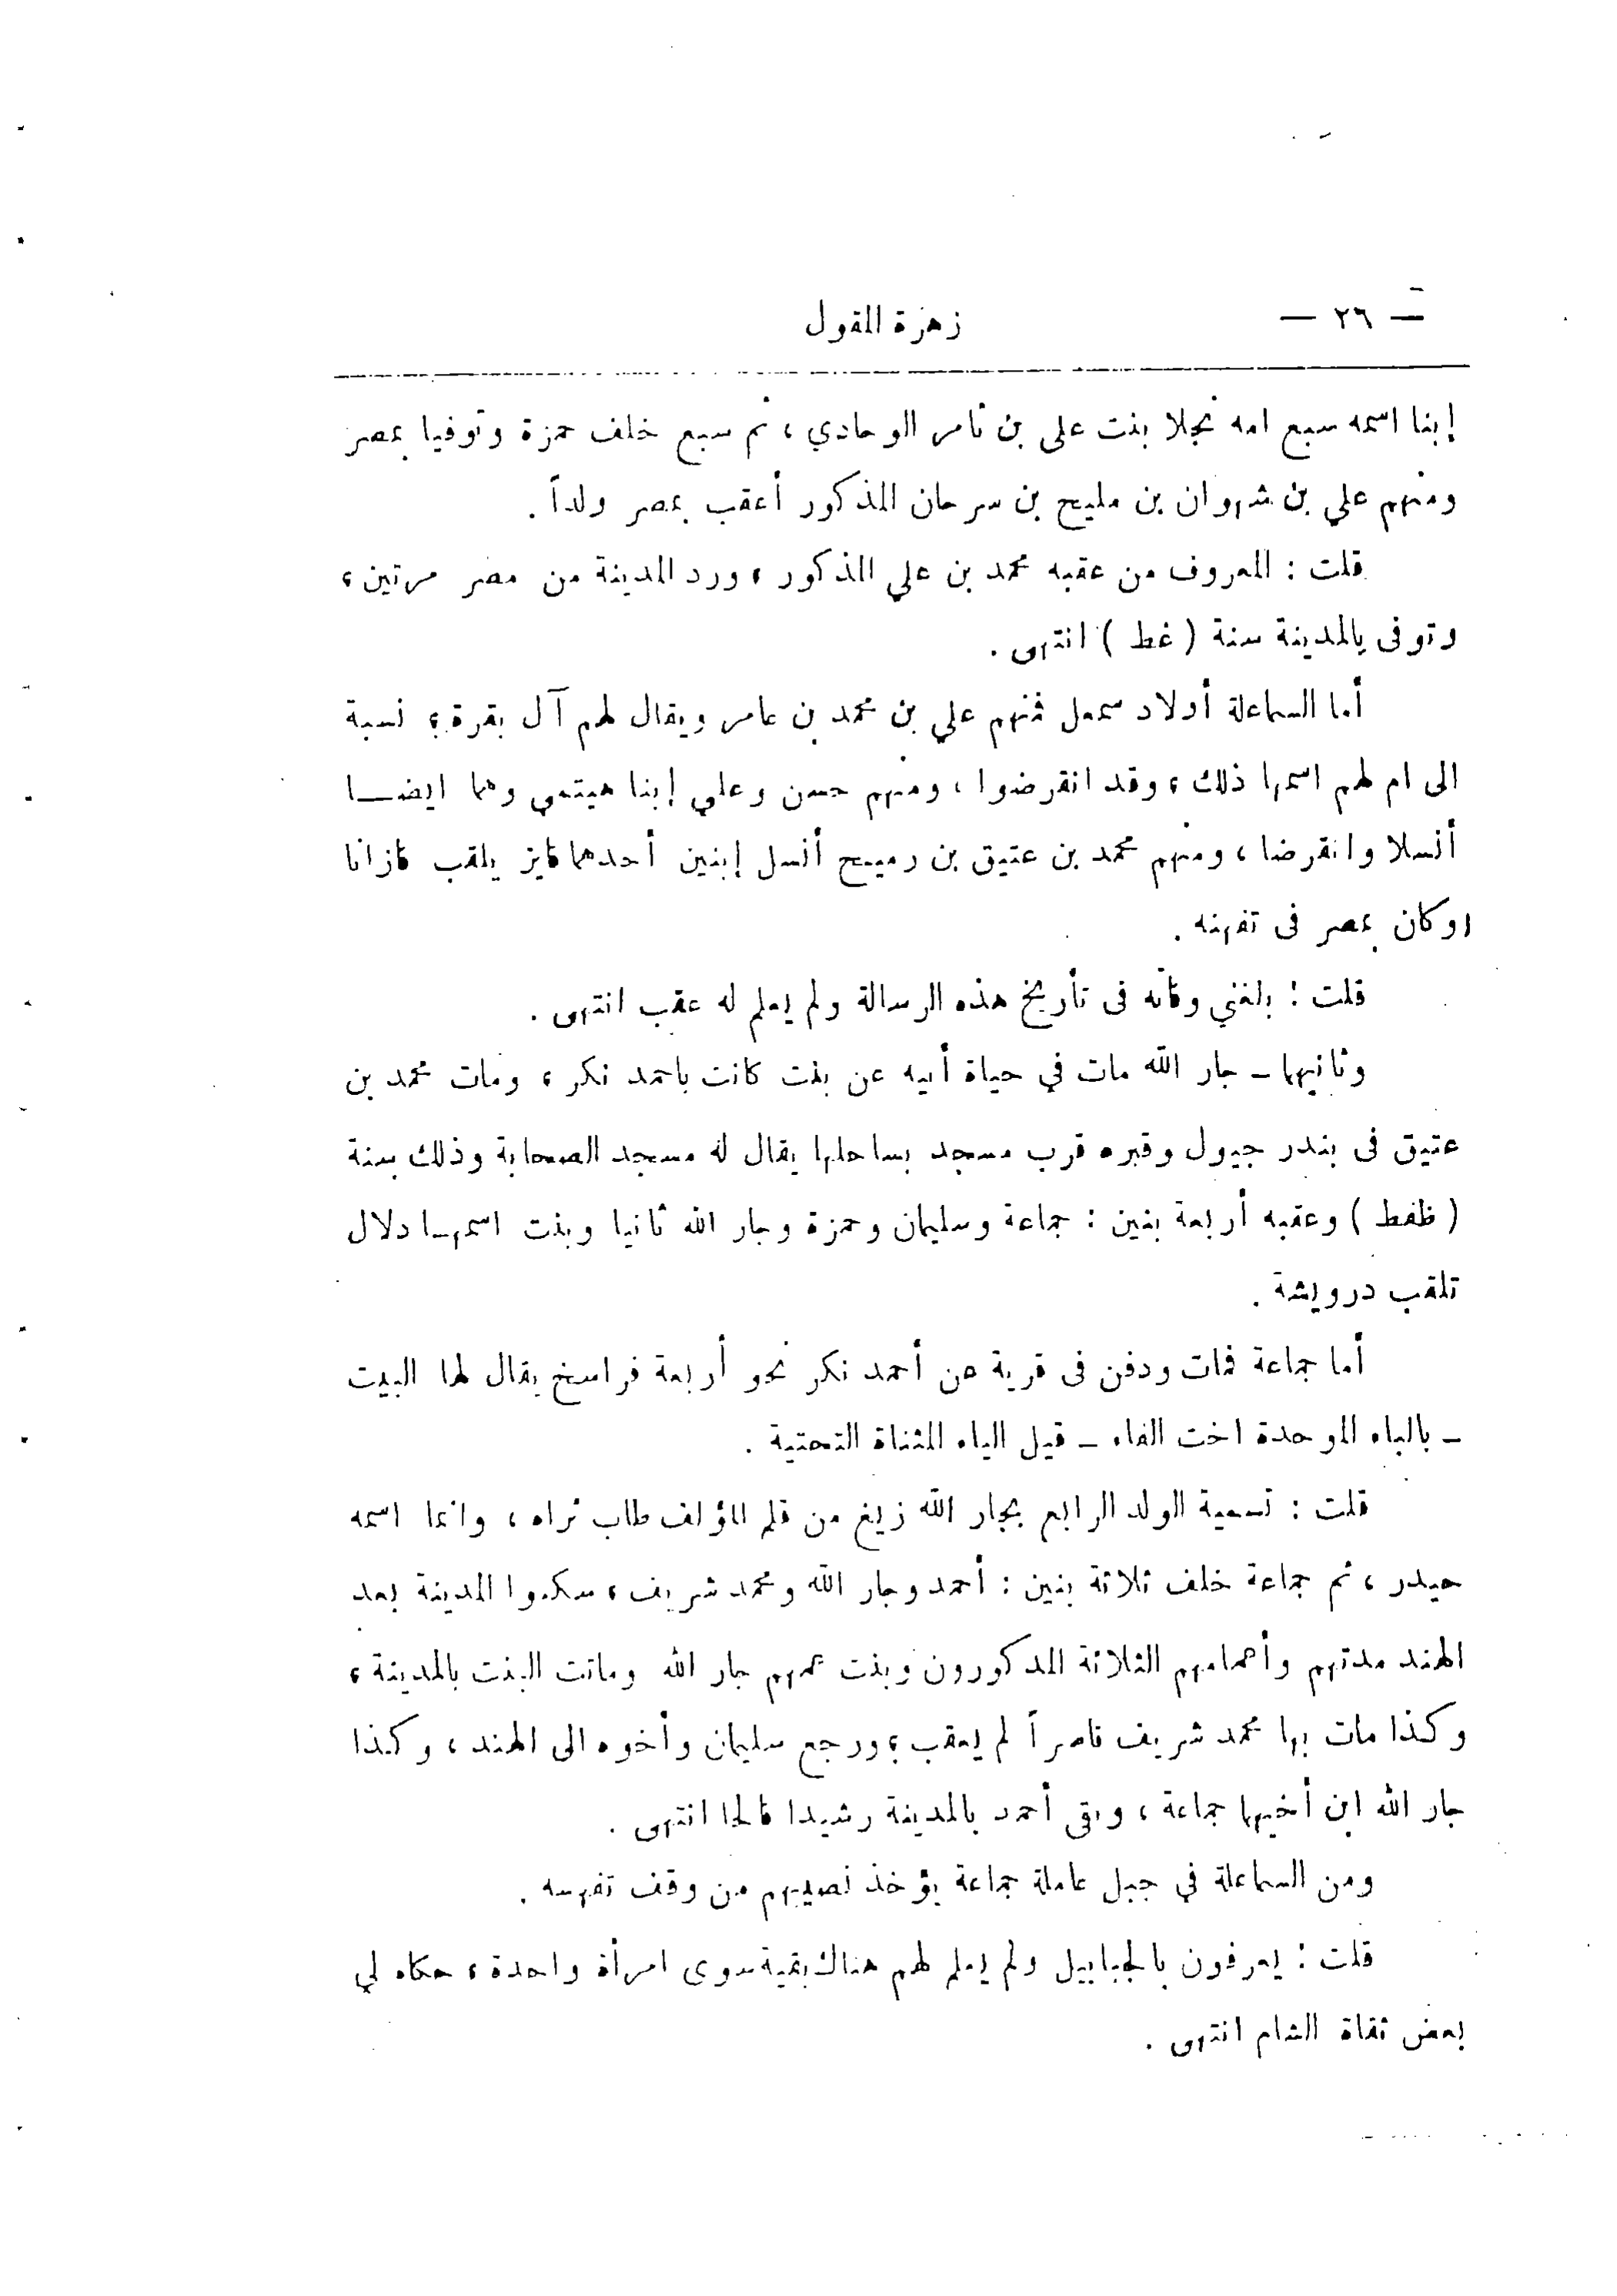 — ٢٦ — زهرة المقول
إبنا اسمه سبع امه نجلا بنت علي بن ثامر الوحادي ، ثم سبع خلف حمزة وتوفيا بمصر
ومنهم علي بن شهوان بن مليح بن سرحان المذكور أعقب بمصر ولداً .
قلت : المعروف من عقبه محمد بن علي المذكور ، ورد المدينة من مصر مرتين ،
وتوفى بالمدينة سنة ( غط ) انتهى .
أما السماعلة أولاد سمعل فمنهم علي بن محمد بن عامر ويقال لهم آل بقرة ؛ نسبة
الى ام لهم اسمها ذلك ، وقد انقرضوا ، ومنهم حسن وعلي إبنا هيتمي وهما ايضــا
أنسلا وانقرضا ، ومنهم محمد بن عتيق بن رميح أنسل إبنين أحدهما فايز يلقب قازانا
وكان بمصر فى تفهنه .
قلت : بلغني وفاته فى تأريخ هذه الرسالة ولم يعلم له عقب انتهى .
وثانيهما ـ جار الله مات في حياة أبيه عن بنت كانت باحمد نكر ، ومات محمد بن
عتيق فى بندر جيول وقبره قرب مسجد بساحلها يقال له مسجد الصحابة وذلك سنة
( ظفط ) وعقبه أربعة بنين : جماعة وسليمان وحمزة وجار الله ثانيا وبنت اسمهـا دلال
تلقب درويشة .
أما جماعة فمات ودفن فى قرية عن أحمد نكر نحو أربعة فراسخ يقال لها البيت
ـ بالباء الموحدة اخت الفاء ـ قيل الياء المثناة التحتية .
قلت : تسمية الولد الرابع بجار الله زيغ من قلم المؤلف طاب ثراه ، وانما اسمه
حيدر ، ثم جماعة خلف ثلاثة بنين : أحمد وجار الله ومحمد شريف ، سكنوا المدينة بعد
الهند مدتهم وأعمامهم الثلاثة المذكورون وبنت عمهم جار الله وماتت البنت بالمدينة ،
وكذا مات بها محمد شريف قاصراً لم يعقب ؛ ورجع سليمان وأخوه الى الهند ، وكذا
جار الله ابن أخيهما جماعة ، وبقى أحمد بالمدينة رشيدا فالحا انتهى .
ومن السماعلة في جبل عاملة جماعة يؤخذ نصيبهم من وقف تفهنه .
قلت : يعرفون بالجبابيل ولم يعلم لهم هناك بقية سوى امرأة واحدة ، حكاه لي
بعض ثقاة الشام انتهى .